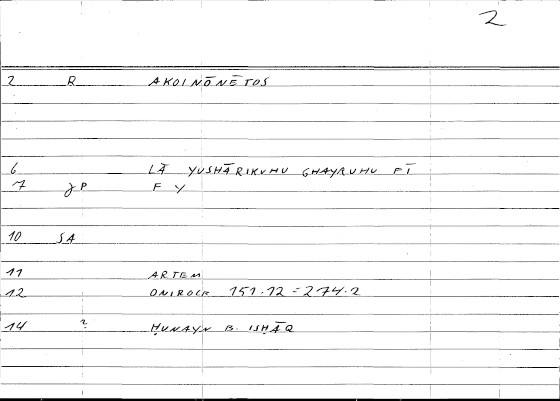 2
2 R AKOINŌNĒTOS
6 LĀ YUSHĀRIKUHU GHAYRUHU FĪ
7 JP F Y
10 SA
11 ARTEM
12 ONIROCR 151.12 = 274.2
14 ? ḤUNAYN B. ISḤĀQ